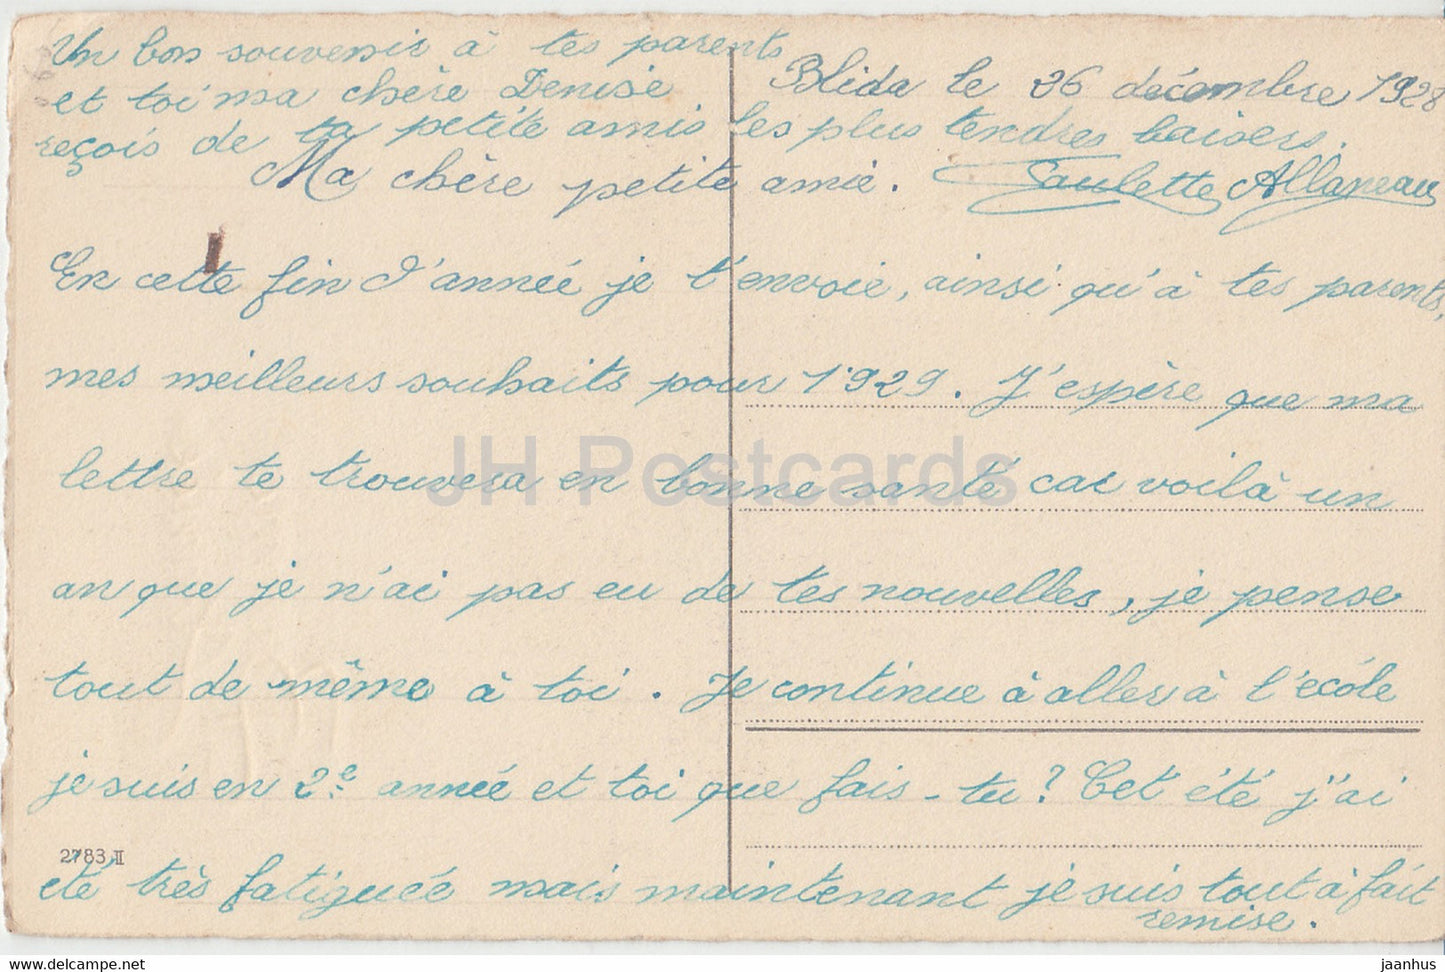 Un bon souvenir à tes parents
et toi ma chère Denise
reçois de ta petite amis les plus tendres baisers.
Blida le 26 décembre 1928
Ma chère petite amie.
Paulette Allaneau
En cette fin d'année je t'envoie, ainsi qu'à tes parents,
mes meilleurs souhaits pour 1929. J'espère que ma
lettre te trouvera en bonne santé car voilà un
an que je n'ai pas eu de tes nouvelles, je pense
tout de même à toi. Je continue à aller à l'école
je suis en 2e année et toi que fais-tu? Cet été j'ai
été très fatiguée mais maintenant je suis tout à fait
remise.
2783 II
JH Postcards
delcampe.net
jaanhus